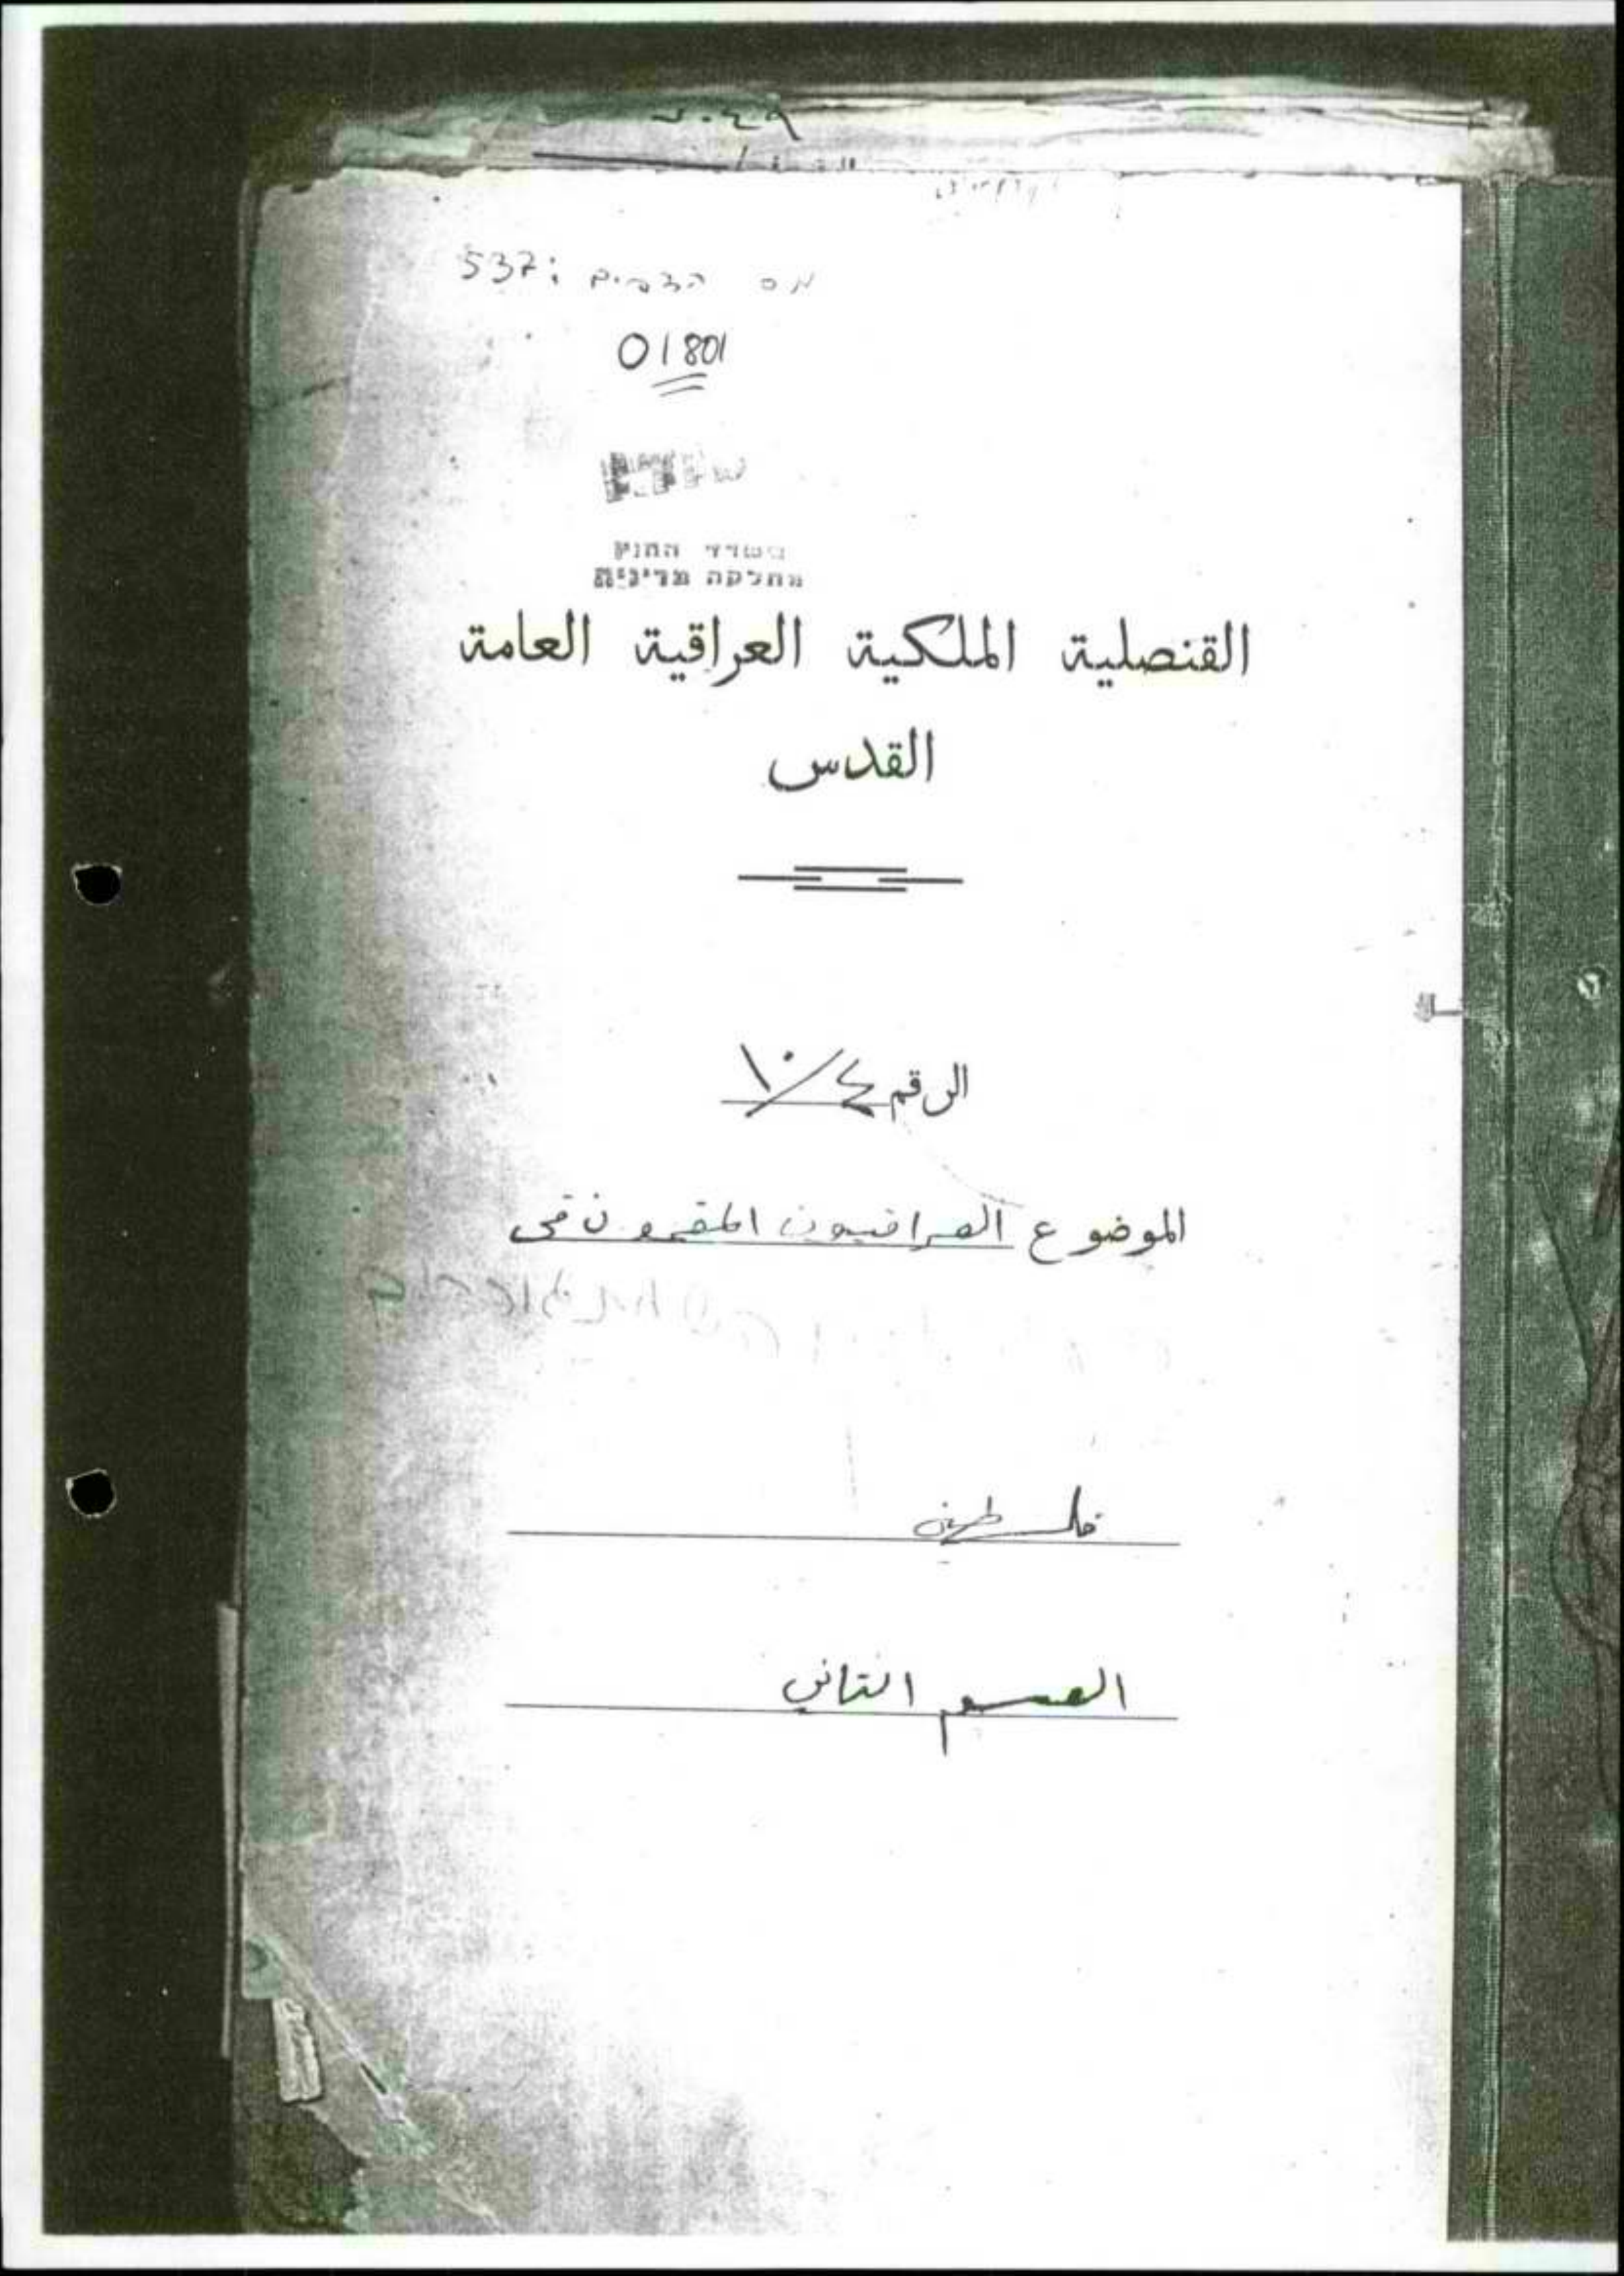 ٢٠٤٩
מס הדפים: 537
01801
משרד החוץ
מחלקה מדינית
القنصلية الملكية العراقية العامة
القدس
الرقم ١٠/٤
الموضوع العراقيون المقيمون في
فلسطين
القسم الثاني